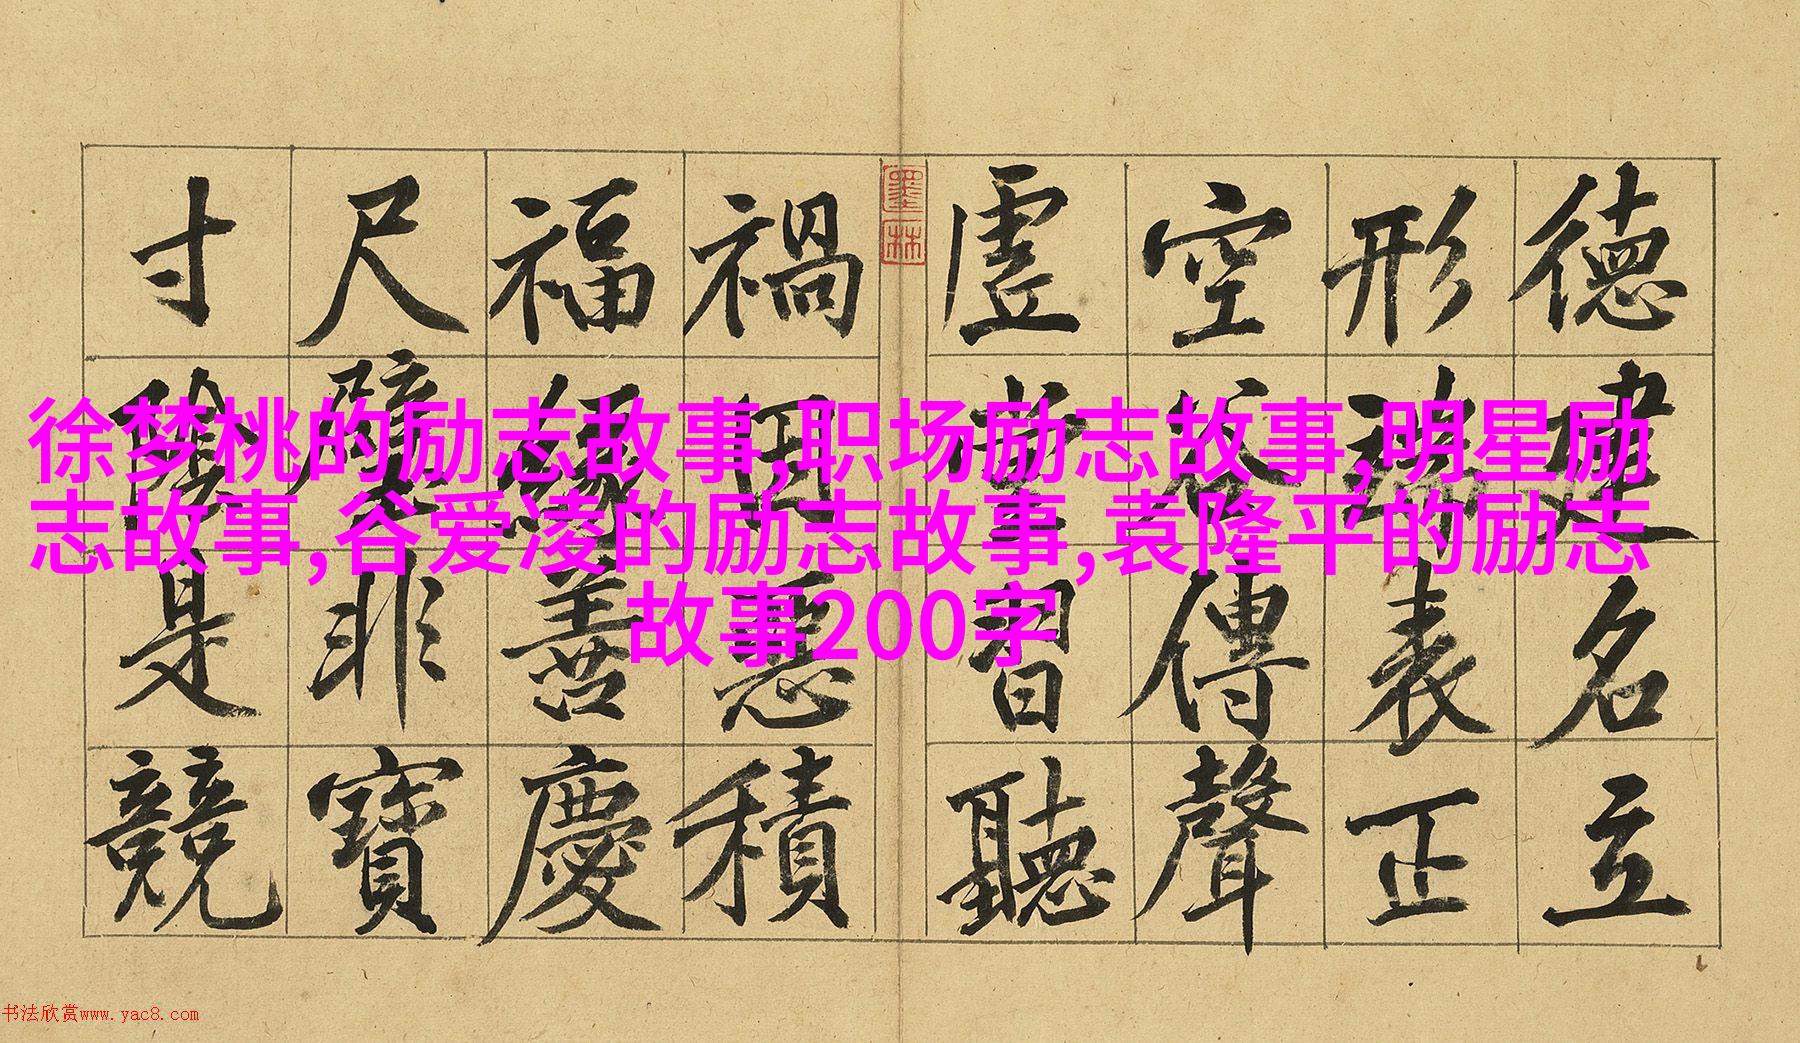 德建名立
形端表正
空谷傳聲
虛堂習聽
墨林
禍因惡積
福緣善慶
尺璧非寶
寸陰是競
徐梦桃的励志故事,职场励志故事,明星励
志故事,谷爱凌的励志故事,袁隆平的励志
故事200字
书法欣赏www.yac8.com